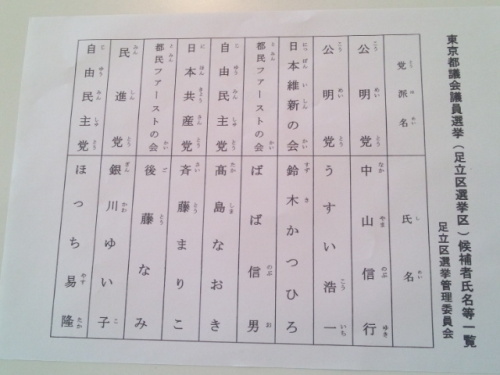 東京都議会議員選挙(足立区選挙区)候補者氏名等一覧
足立区選挙管理委員会
党派名 氏名
公明党 中山信行
公明党 うすい浩一
日本維新の会 鈴木かつひろ
都民ファーストの会 ばば信男
自由民主党 高島なおき
日本共産党 斉藤まりこ
都民ファーストの会 後藤なみ
民進党 銀川ゆい子
自由民主党 ほっち易隆